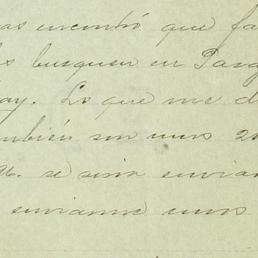 as encontró que fa
les busquen en Parg
ay. Lo que me d
ambién son unos 2
96. se sirva envia
enviarme unos